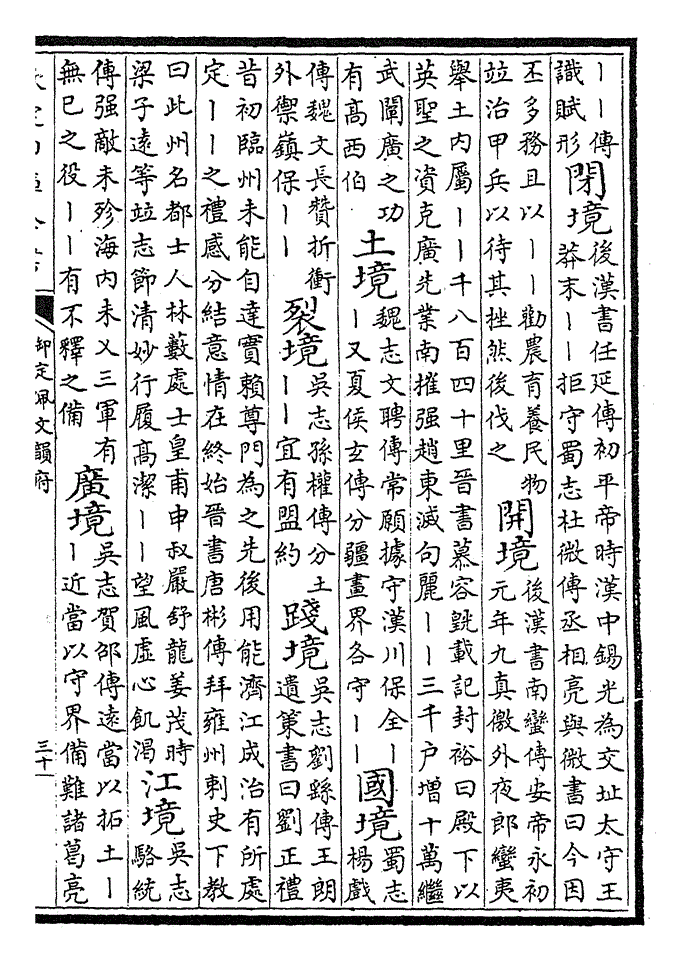 丨丨傳
識賦形
閉境
後漢書任延傳初平帝時漢中錫光為交址太守王
莽末丨丨拒守蜀志杜微傳丞相亮與微書曰今因
丕多務且以丨丨勸農育養民物
竝治甲兵以待其挫然後伐之
開境
後漢書南蠻傳安帝永初
元年九真徼外夜郎蠻夷
舉土內屬丨丨千八百四十里晉書慕容皝載記封裕曰殿下以
英聖之資克廣先業南摧强趙東滅句麗丨丨三千户增十萬繼
武闡廣之功
有高西伯
土境
魏志文聘傳常願據守漢川保全丨
丨又夏侯玄傳分疆畫界各守丨丨
國境
蜀志
楊戲
傳魏文長贊折衝
外禦嶺保丨丨
裂境
吳志孫權傳分土
丨丨宜有盟約
踐境
吳志劉繇傳王朗
遺策書曰劉正禮
昔初臨州未能自達實賴尊門為之先後用能濟江成治有所處
定丨丨之禮感分結意情在終始晉書唐彬傳拜雍州刺史下教
曰此州名都士人林藪處士皇甫申叔嚴舒龍姜茂時
梁子遠等竝志節清妙行履高潔丨丨望風虛心飢渴
江境
吳志
駱統
傳强敵未殄海內未乂三軍有
無已之役丨丨有不釋之備
廣境
吳志賀邵傳遠當以拓土丨
丨近當以守界備難諸葛亮
御定佩文韻府
三十一